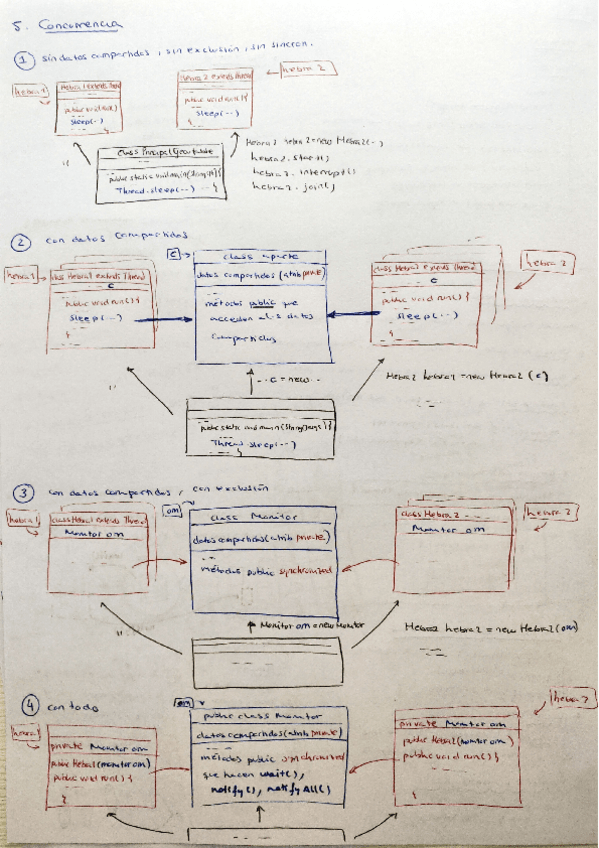 5. Concurrencia
① sin datos compartidos, sin exclusión, sin sincron.
hebra1
Hebra1 extends Thread
public void run()
sleep(--)
}
Hebra2 extends Thread
public void run(){
sleep(--)
}
hebra2
class Principal
public static void main(String[]){
Thread.sleep(--) -- {
Hebra2 hebra2 = new Hebra2(--)
hebra2.start()
hebra2.interrupt()
hebra2.join()
② con datos compartidos
hebra1
class Hebra1 extends Thread
c
public void run(){
sleep(--)
}
c
class aparte
datos compartidos (atrib private)
métodos public que
acceden a los datos
compartidos
class Hebra2 extends Thread
c
public void run(){
sleep(--)
}
hebra2
-- c = new --
Hebra2 hebra2 = new Hebra2(c)
public static void main(String[]args){
Thread.sleep(--)
{
③ con datos compartidos, con exclusión
hebra1
class Hebra1 extends Thread
Monitor om
om
class Monitor
datos compartidos (atrib private)
métodos public synchronized
class Hebra2 --
Monitor om
hebra2
Monitor om = new Monitor
Hebra2 hebra2 = new Hebra2(om)
④ con todo
hebra1
private Monitor om
public Hebra1(monitor om)
public void run(){
}
om
public class Monitor
datos compartidos (atrib private)
métodos public synchronized
que hacen wait(),
notify(), notifyAll()
private Monitor om
public Hebra2(monitor om)
public void run(){
}
hebra2